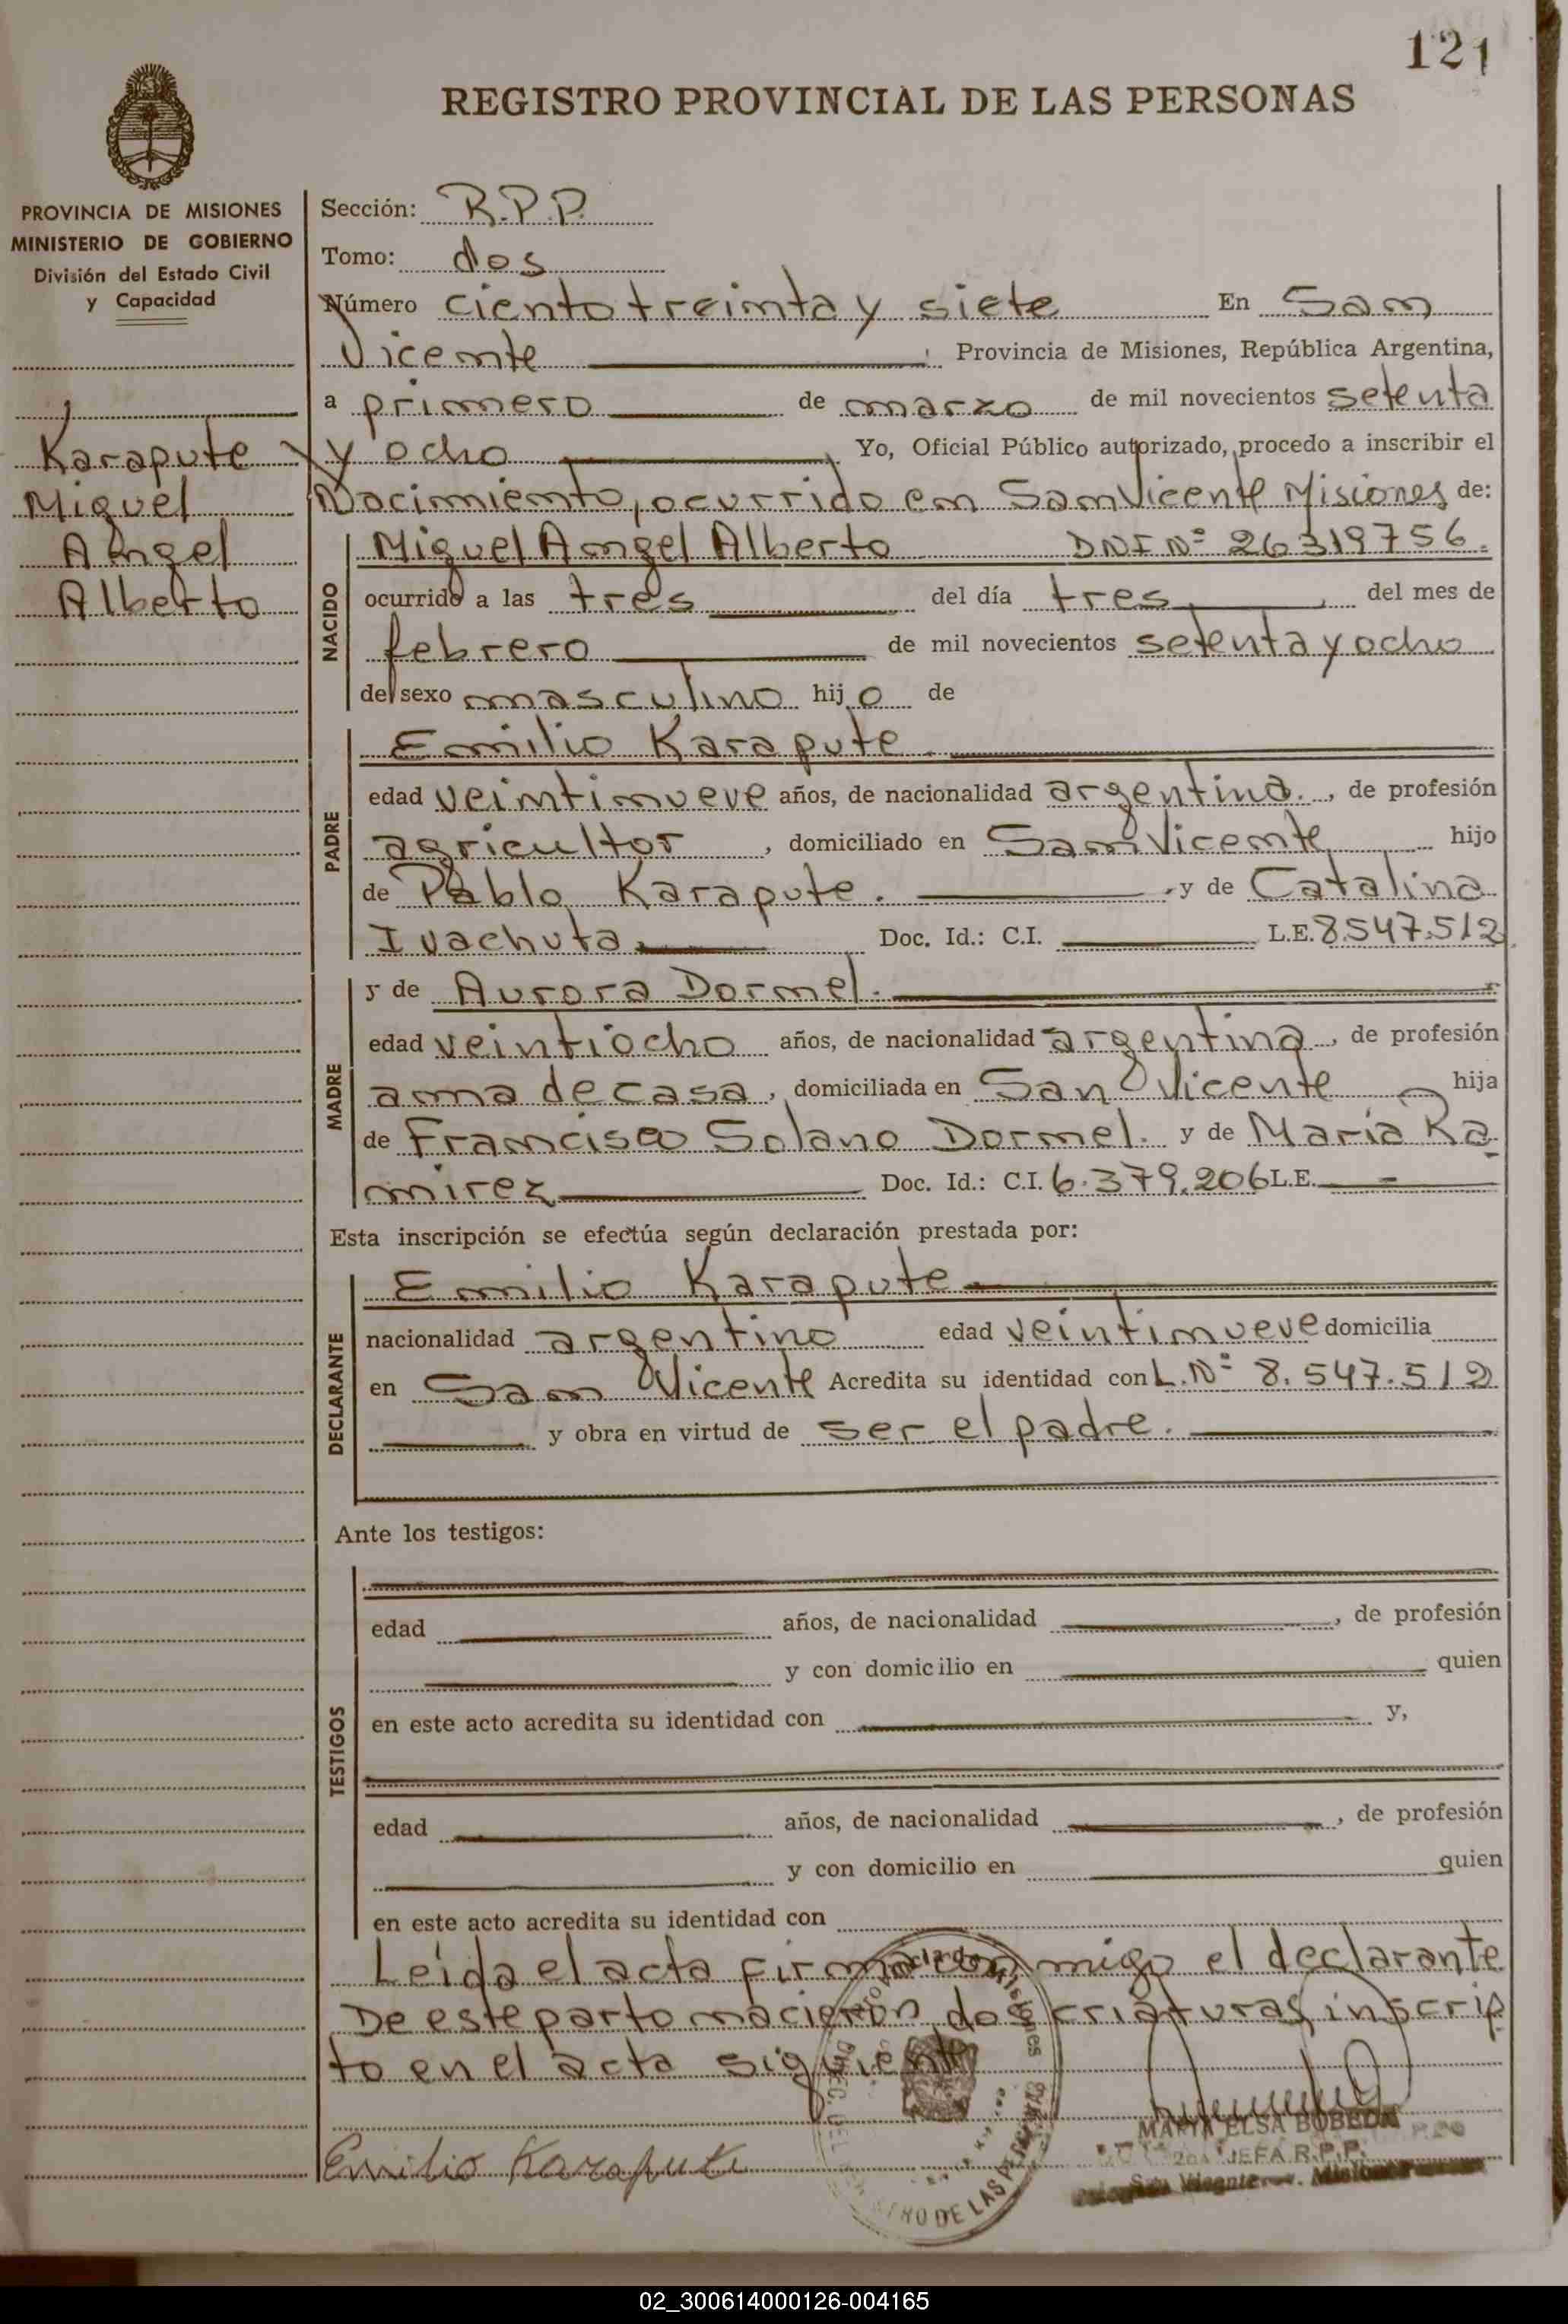 121
REGISTRO PROVINCIAL DE LAS PERSONAS
PROVINCIA DE MISIONES
MINISTERIO DE GOBIERNO
División del Estado Civil
y Capacidad
Karapute
Miguel
Angel
Alberto
Sección: R.P.P.
Tomo: dos
Número ciento treinta y siete En San
Vicente , Provincia de Misiones, República Argentina,
a primero de marzo de mil novecientos setenta
y ocho Yo, Oficial Público autorizado, procedo a inscribir el
Nacimiento, ocurrido en San Vicente Misiones de:
NACIDO
Miguel Angel Alberto DNI Nº 26319756.
ocurrido a las tres del día tres del mes de
febrero de mil novecientos setenta y ocho
del sexo masculino hijo de
PADRE
Emilio Karapute.
edad veintinueve años, de nacionalidad argentina., de profesión
agricultor , domiciliado en San Vicente hijo
de Pablo Karapute. y de Catalina
Ivachuta Doc. Id.: C.I. L.E. 8.547.512
MADRE
y de Aurora Dormel.
edad veintiocho años, de nacionalidad argentina, de profesión
ama de casa, domiciliada en San Vicente hija
de Francisco Solano Dormel. y de María Ra
mirez Doc. Id.: C.I. 6.379.206 L.E. -
Esta inscripción se efectúa según declaración prestada por:
DECLARANTE
Emilio Karapute
nacionalidad argentino edad veintinueve domicilia
en San Vicente Acredita su identidad con L.Nº 8.547.512
y obra en virtud de ser el padre.
Ante los testigos:
TESTIGOS
edad años, de nacionalidad , de profesión
y con domicilio en quien
en este acto acredita su identidad con y,
edad años, de nacionalidad , de profesión
y con domicilio en quien
en este acto acredita su identidad con
Leída el acta firma conmigo el declarante
De este parto nacieron dos criaturas, inscrip
to en el acta siguiente
Emilio Karapute
MARIA ELSA BOBEDA
JEFA R.P.P.
02_300614000126-004165